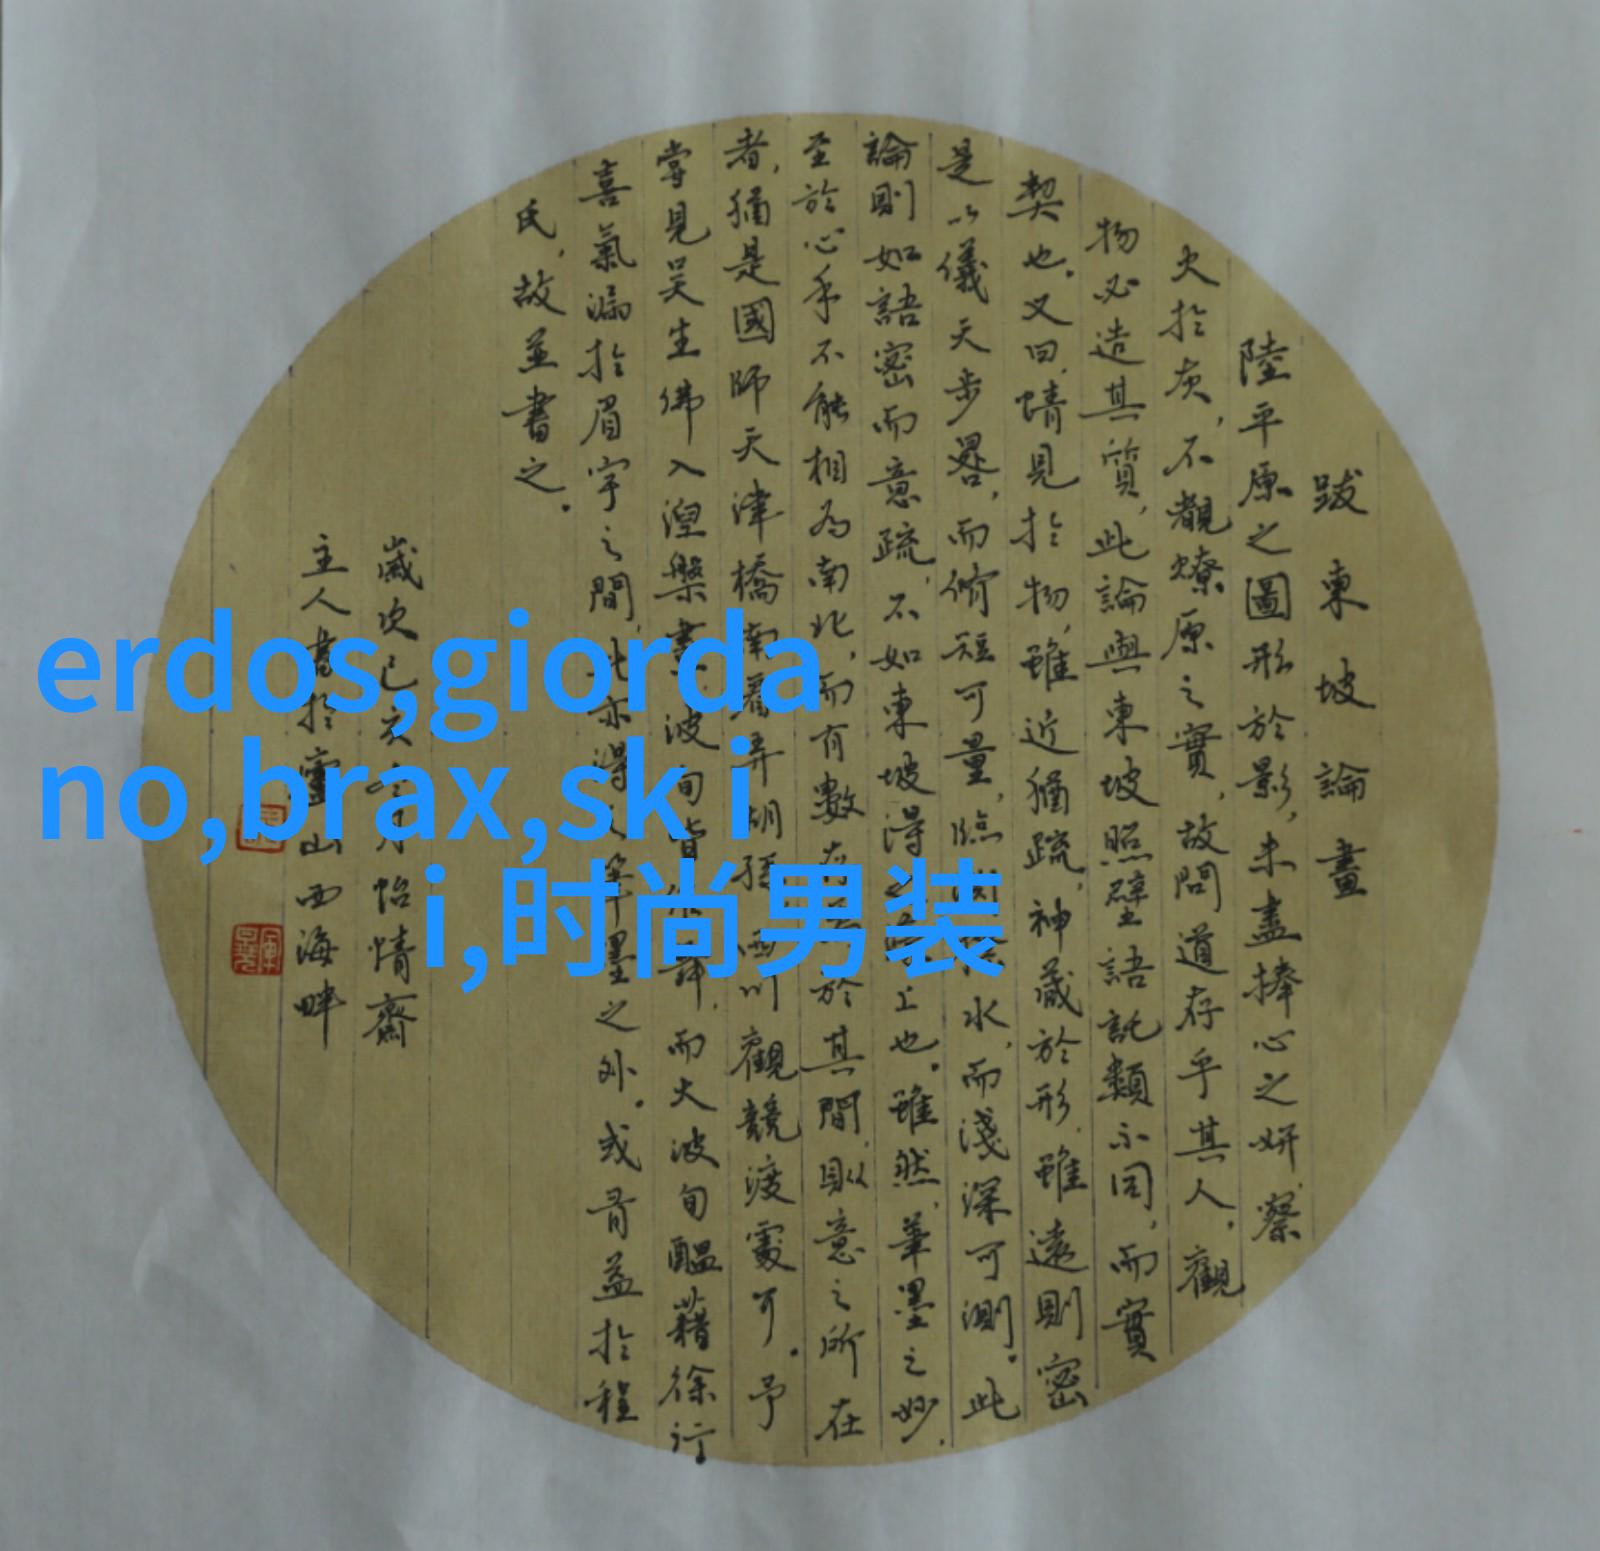 跋東坡論畫
陸平原之圖形於影，未盡捧心之妍，察
火於灰，不覩燎原之實，故問道存乎其人，觀
物必造其質，此論與東坡照壁語託類不同，而實
契也。又曰，情見於物，雖近猶疏，神藏於形，雖遠則密
是以儀天步晷，而脩短可量，臨水，而淺深可測。此
論則如語密而意疏，不如東坡得之上也。雖然，筆墨之妙，
至於心手不能相為南北，而有數存於其間，則意之所在
者，猶是國師天津橋南看弄胡孫，西川觀競渡處可。予
嘗見吳生佛入涅槃畫，波旬皆作舞，而大波旬醞藉徐行
喜氣漏於眉宇之間，此亦得之筆墨之外。或有益於程
氏，故並書之。
歲次己亥冬月怡情齋
主人書於靈山西海畔
erdos,giorda
no,brax,sk i
i,时尚男装